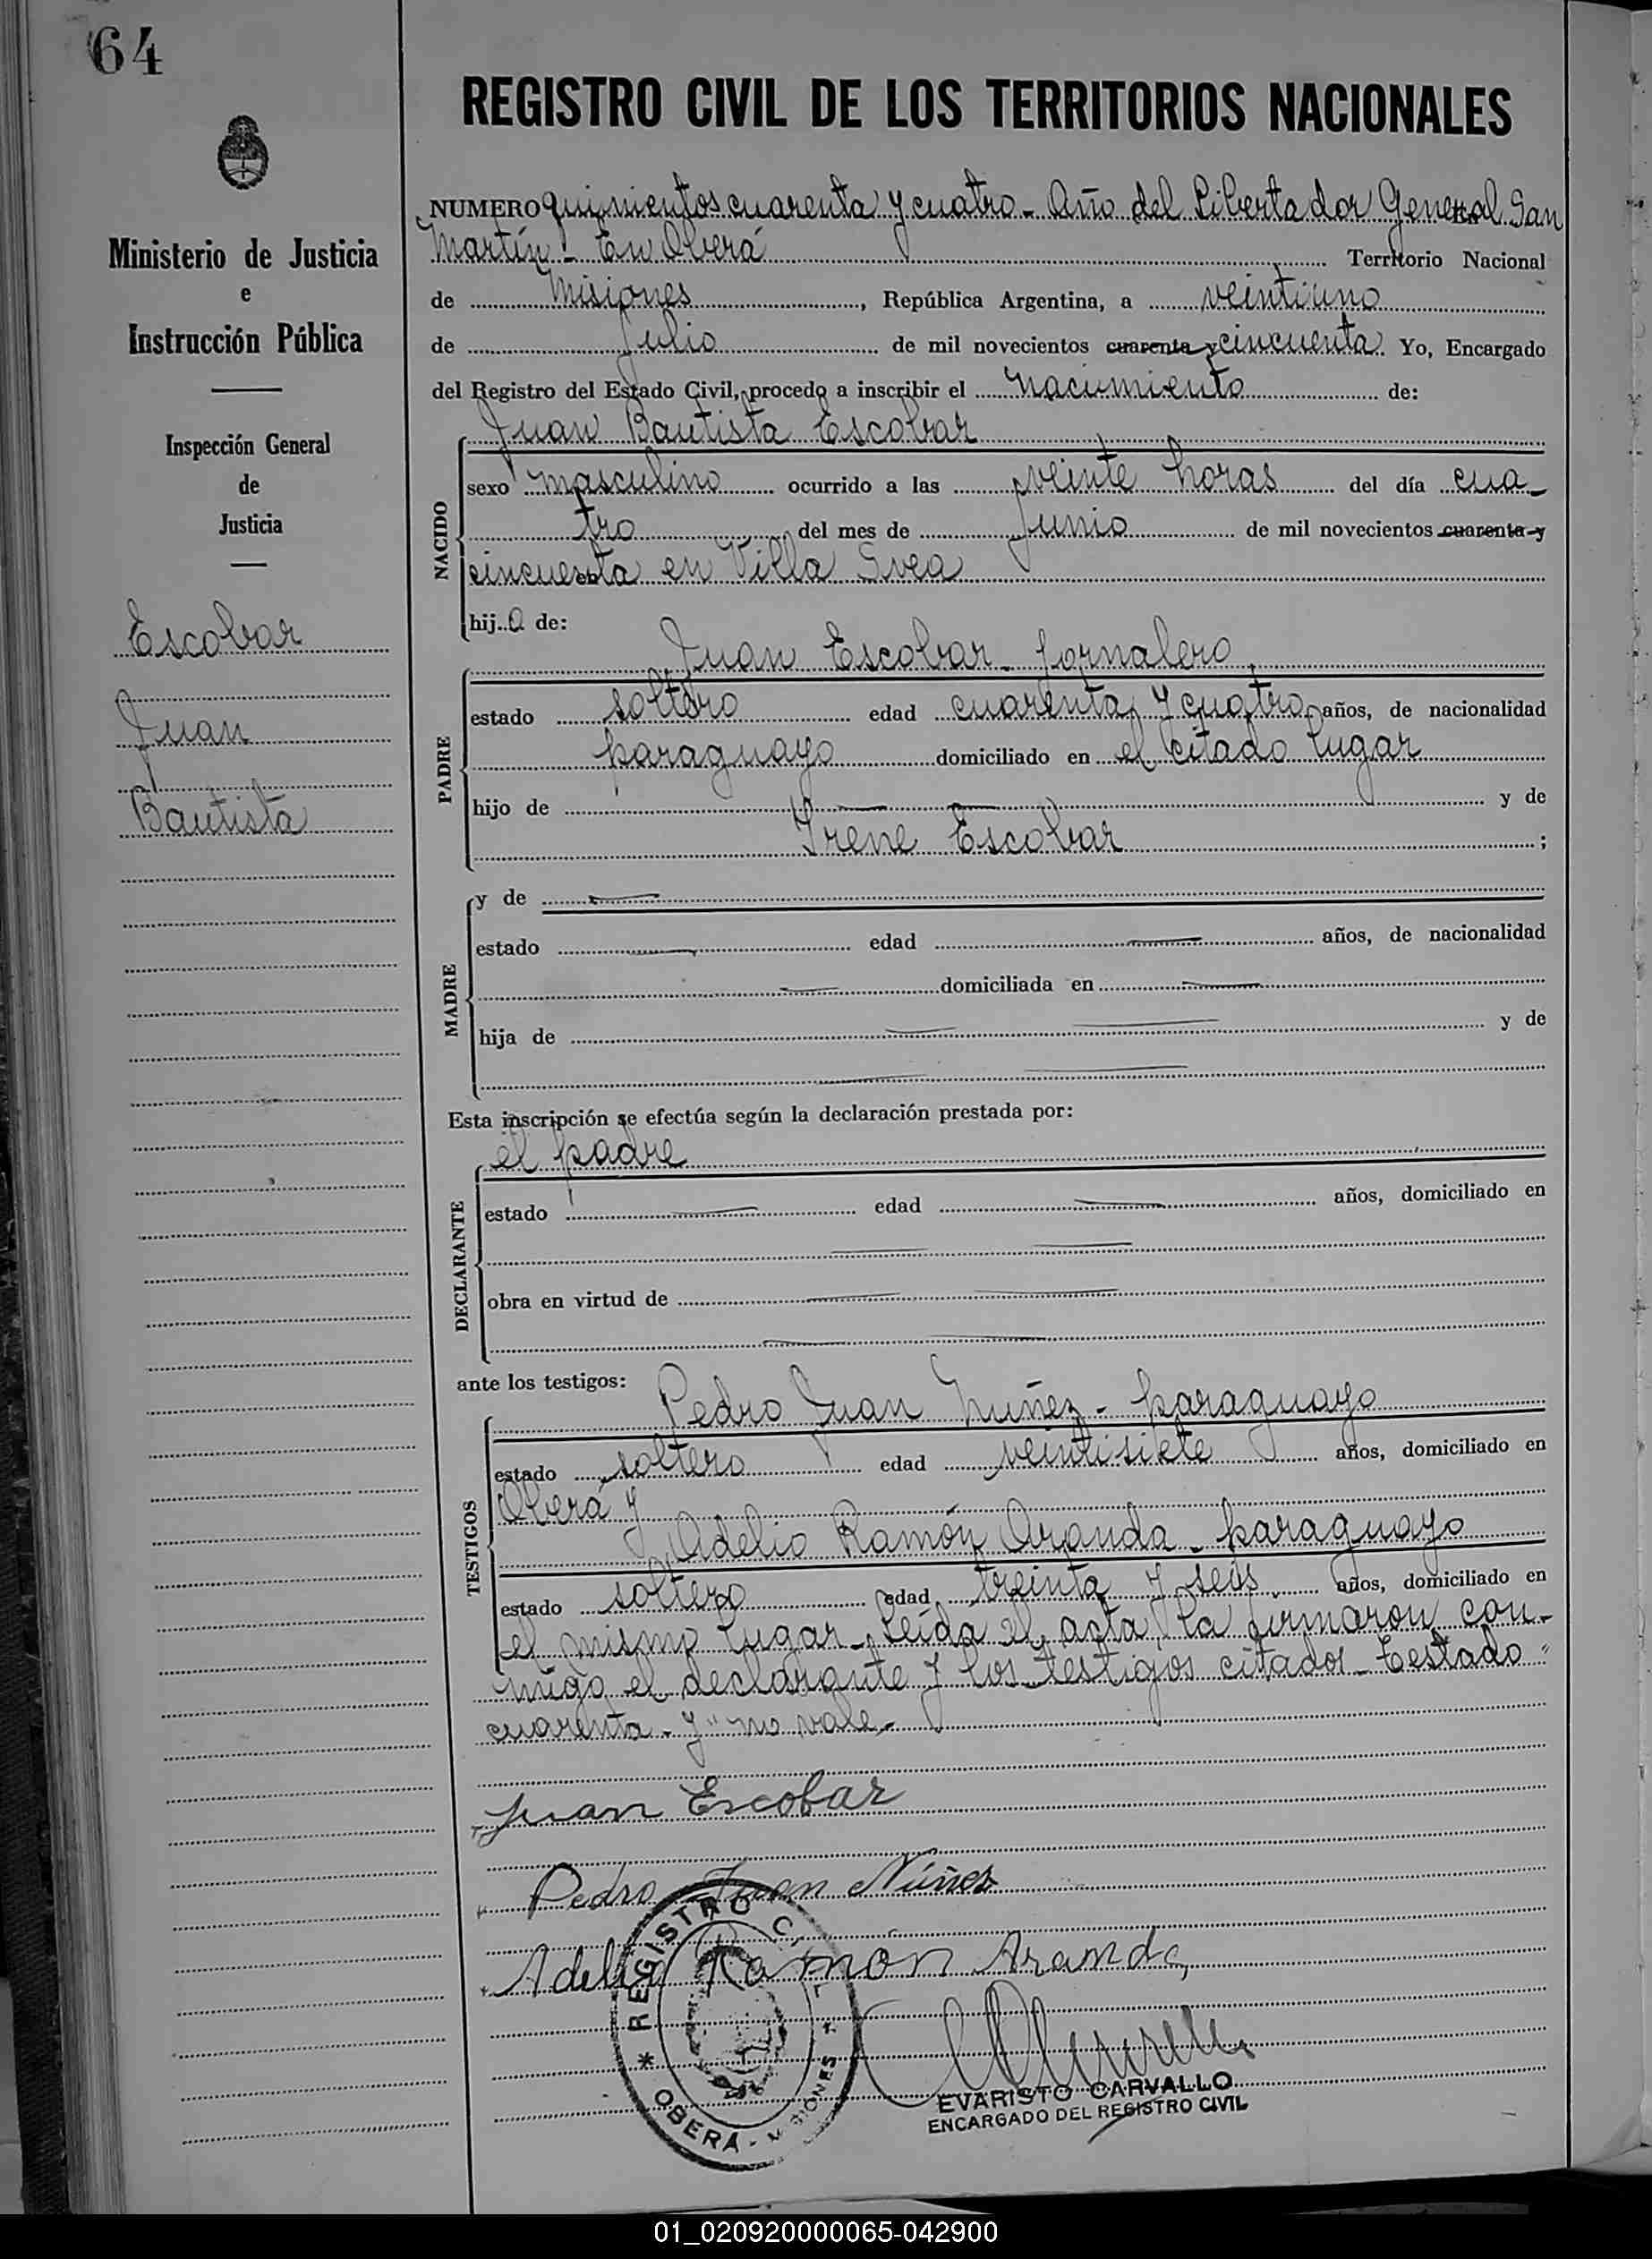 64
REGISTRO CIVIL DE LOS TERRITORIOS NACIONALES
Ministerio de Justicia
e
Instrucción Pública
Inspección General
de
Justicia
Escobar
Juan
Bautista
NUMERO quinientos cuarenta y cuatro - Año del Libertador General San
Martín - En Oberá Territorio Nacional
de Misiones, República Argentina, a veintiuno
de Julio de mil novecientos cuarenta y cincuenta. Yo, Encargado
del Registro del Estado Civil, procedo a inscribir el nacimiento de:
NACIDO
Juan Bautista Escobar
sexo masculino ocurrido a las veinte horas del día cua-
tro del mes de Junio de mil novecientos cuarenta y
cincuenta en Villa Svea
hijo de:
PADRE
Juan Escobar - Jornalero
estado soltero edad cuarenta y cuatro años, de nacionalidad
paraguayo domiciliado en el citado lugar
hijo de y de
Irene Escobar ;
MADRE
y de
estado edad años, de nacionalidad
domiciliada en
hija de y de
Esta inscripción se efectúa según la declaración prestada por:
DECLARANTE
el padre
estado edad años, domiciliado en
obra en virtud de
ante los testigos:
TESTIGOS
Pedro Juan Nuñez - paraguayo
estado soltero edad veintisiete años, domiciliado en
Oberá y
Adelio Ramón Aranda - paraguayo
estado soltero edad treinta y seis años, domiciliado en
el mismo lugar - Leída el acta, la firmaron con-
migo el declarante y los testigos citados - Testado "
cuarenta - y" no vale -
Juan Escobar
Pedro Juan Núñez
Adelio Ramón Aranda
* REGISTRO CIVIL *
OBERA - MISIONES
EVARISTO CARVALLO
ENCARGADO DEL REGISTRO CIVIL
01_020920000065-042900